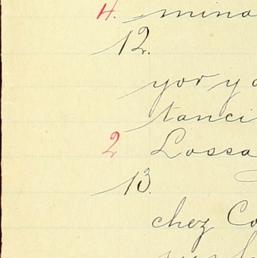 4. mina
12.
yor y a
tanci
2 Lossa
13.
chez Co